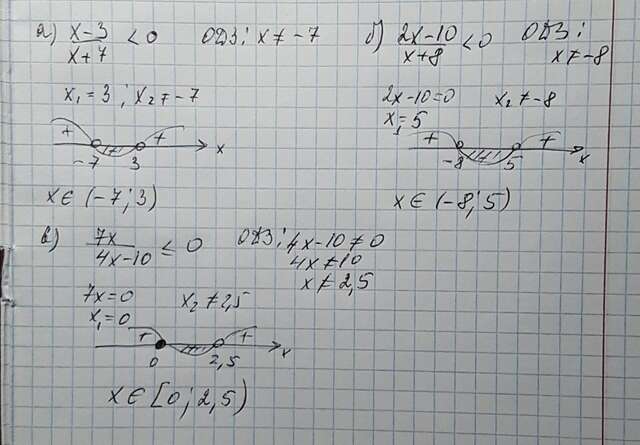 а) x-3/x+7 < 0 ОДЗ: x ≠ -7
x₁ = 3 ; x₂ ≠ -7
+ + x
-7 3
x ∈ (-7; 3)
б) 2x-10/x+8 < 0 ОДЗ:
x ≠ -8
2x-10=0 x₂ ≠ -8
x₁ = 5
+ + x
-8 5
x ∈ (-8; 5)
в) 7x/4x-10 ≤ 0 ОДЗ: 4x-10 ≠ 0
4x ≠ 10
x ≠ 2,5
7x=0 x₂ ≠ 2,5
x₁ = 0
+ + x
0 2,5
x ∈ [0; 2,5)